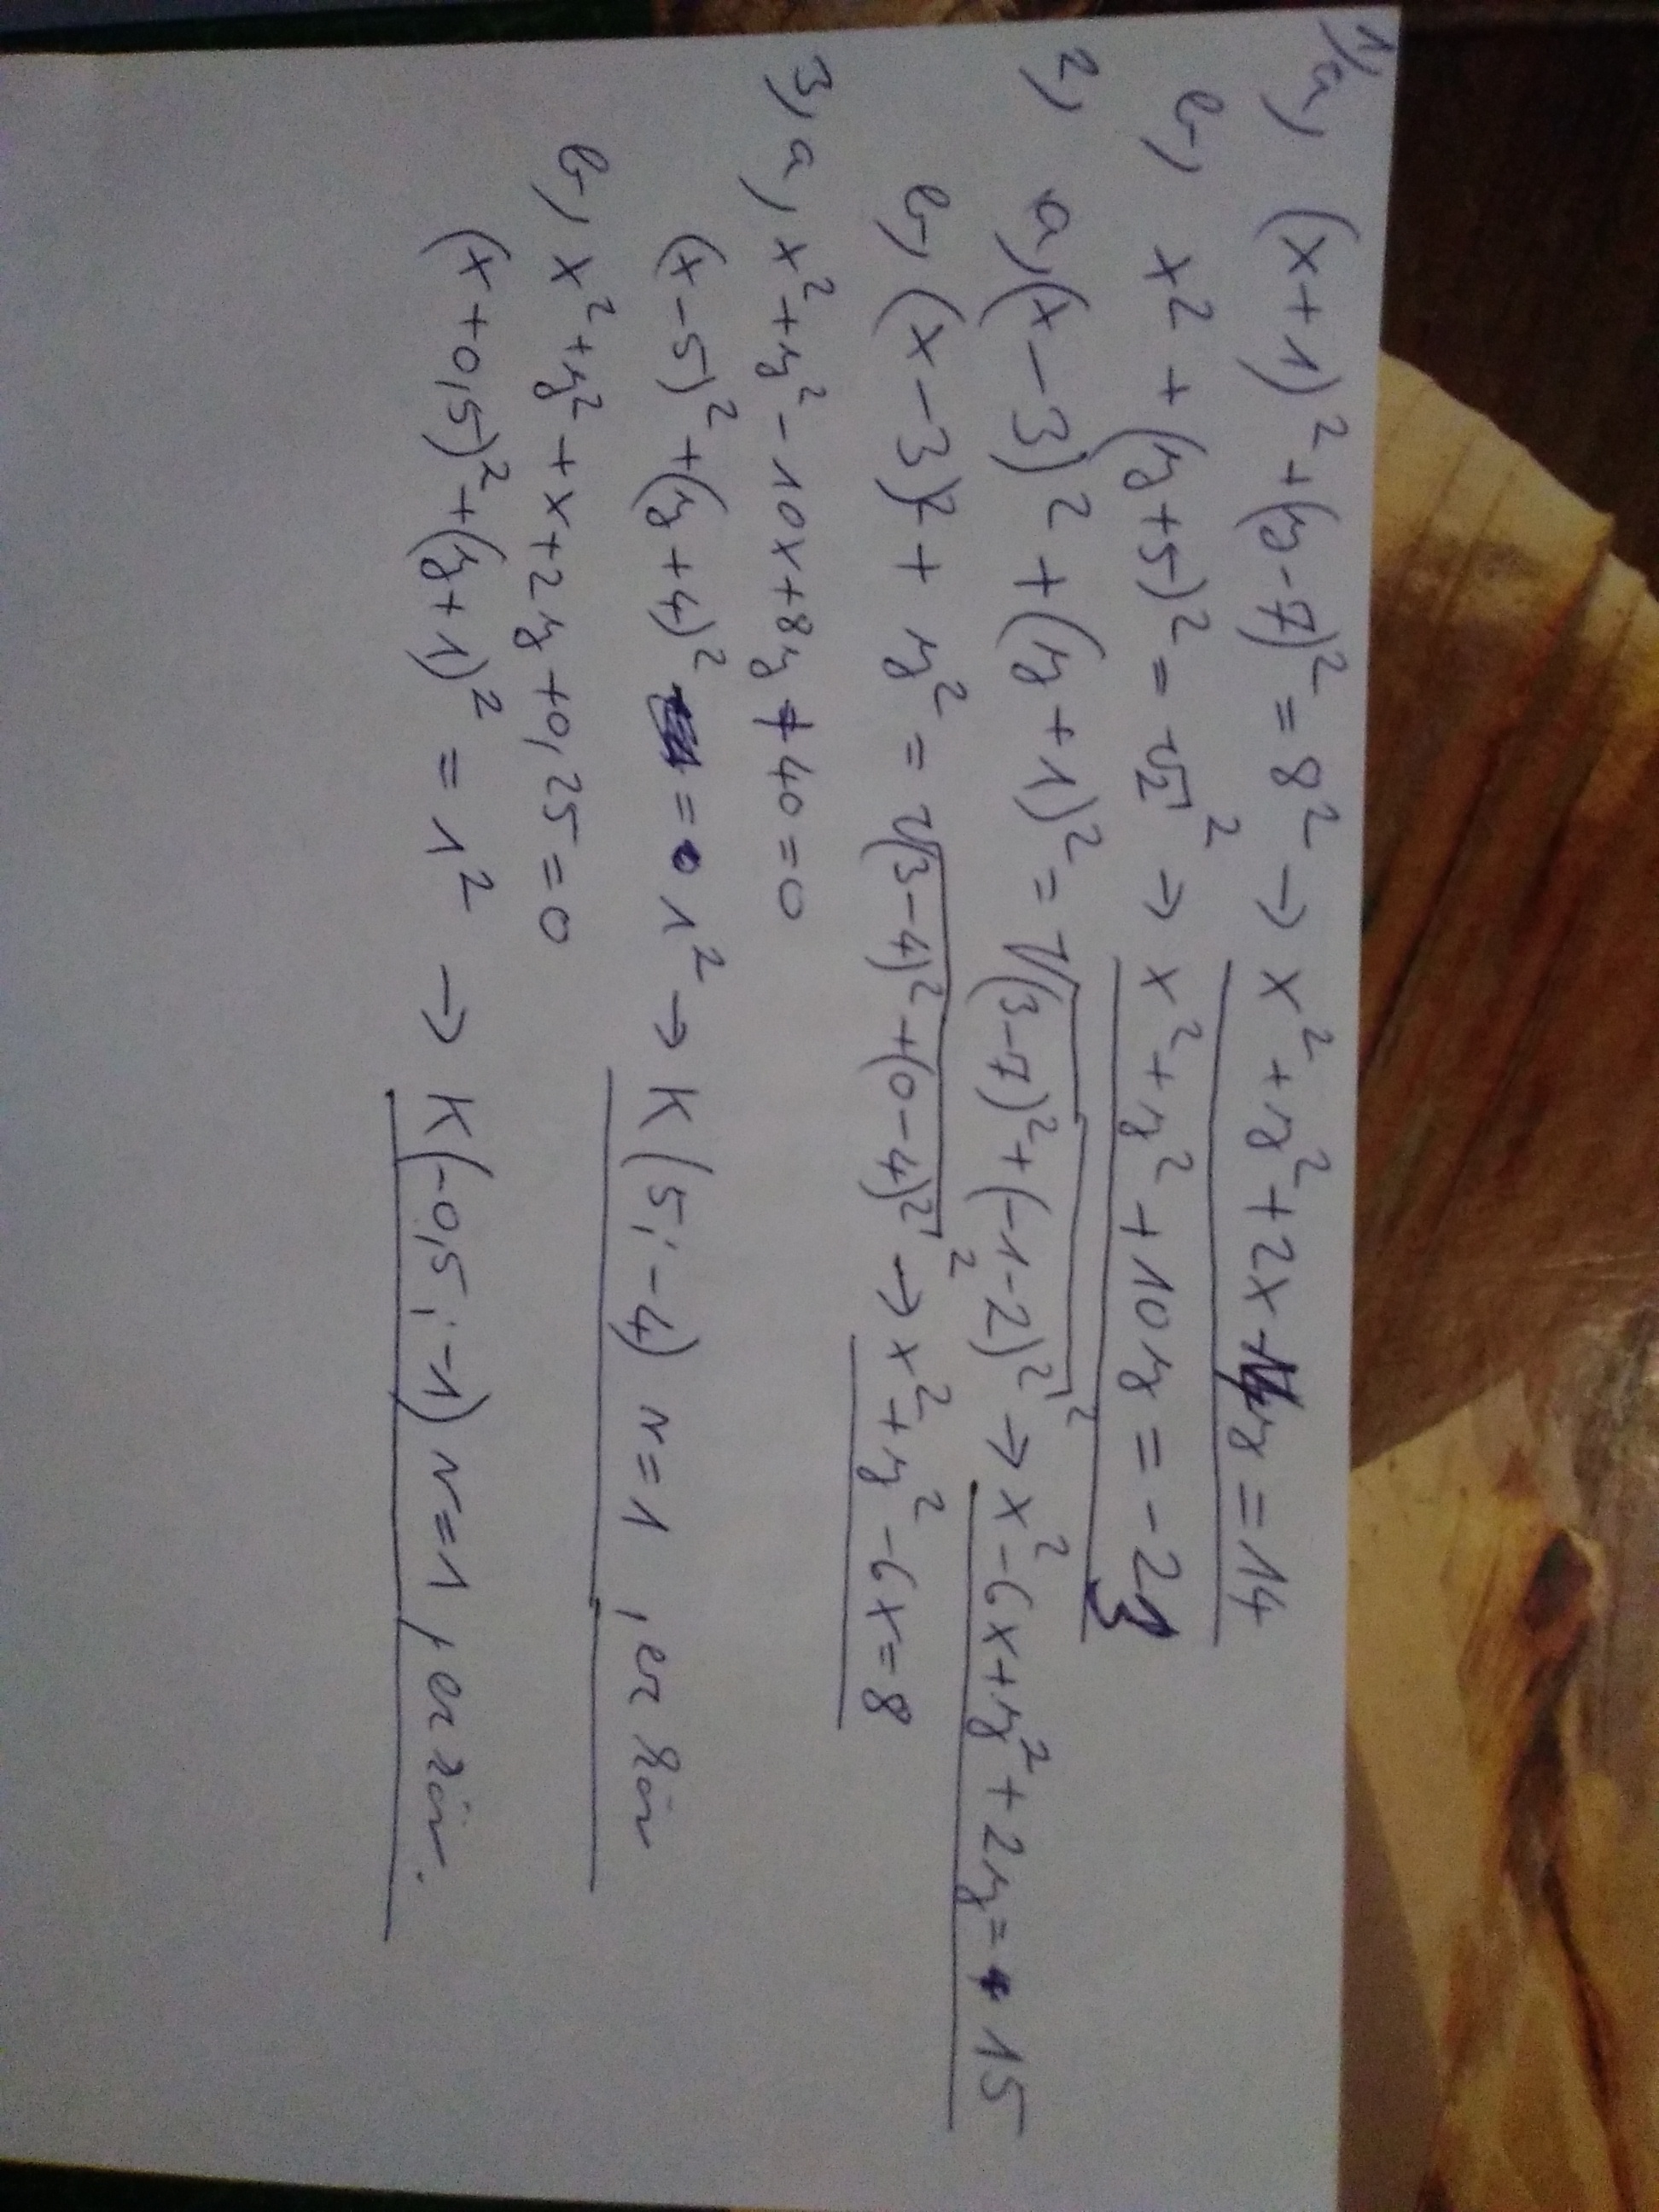 1, a, (x+1)² + (y-7)² = 8² → x² + y² + 2x - 14y = 14
b, x² + (y+5)² = √2² → x² + y² + 10y = -23
2, a, (x-3)² + (y+1)² = √(3-7)² + (-1-2)²² → x² - 6x + y² + 2y = 15
b, (x-3)² + y² = √(3-4)² + (0-4)²² → x² + y² - 6x = 8
3, a, x² + y² - 10x + 8y + 40 = 0
(x-5)² + (y+4)² = 1² → K(5; -4) r=1, ez kör
b, x² + y² + x + 2y + 0,25 = 0
(x+0,5)² + (y+1)² = 1² → K(-0,5; -1) r=1, ez kör.